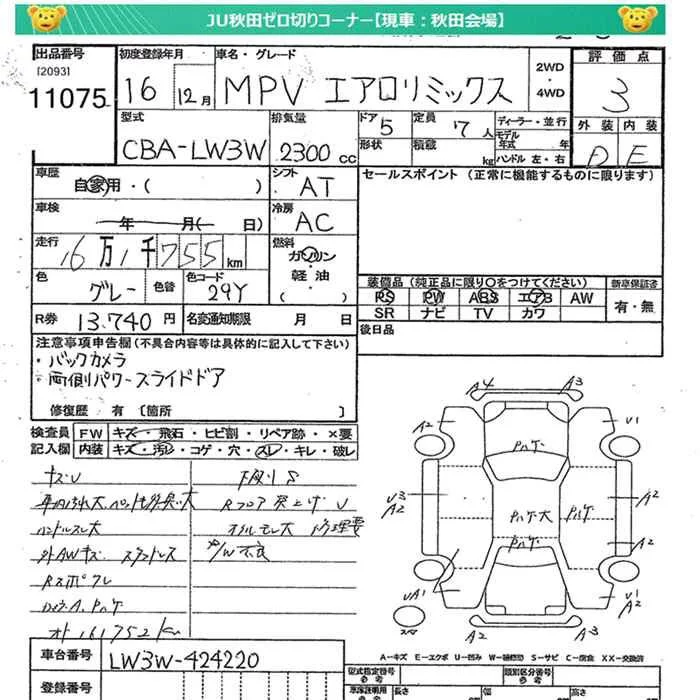 JU秋田ゼロ切りコーナー【現車：秋田会場】
出品番号 初度登録年月 車名・グレード 2WD ・ 4WD 評価点
[2093]
11075 16 12月 MPV エアロリミックス 3
型式 排気量 ドア 5 定員 7人 ディーラー・並行 外装 内装
CBA-LW3W 2300cc 形状 積載 kg モデル年式 年 ハンドル 左・右 D E
車歴 自家用・( ) シフト AT セールスポイント (正常に機能するものに限ります)
車検 年 月( 日) 冷房 AC
走行 16万1千755km 燃料 ガソリン・軽油・( )
色 グレー 色替 色コード 29Y
装備品 (純正品に限り○をつけてください) 新車保証書
PS PW ABS エアB AW 有・無
SR ナビ TV カワ
R券 13,740円 名変通知期限 月 日 後日品
注意事項申告欄 (不具合内容等は具体的に記入して下さい)
・バックカメラ
・両側パワースライドドア
修復歴 有 [箇所 ]
検査員 FW キズ・飛石・ヒビ割・リペア跡・×要
記入欄 内装 キズ・汚レ・コゲ・穴・スレ・キレ・破レ
キズU
Rフロア突上げ U
ハンドルスレ大 オイルモレ大 修理要
外AWキズ P/W不良
オト 161752km
A4 A3
A2 U1
Pハゲ
U3 A2 Pハゲ大 Pハゲ A2
Pハゲ A2
UA1 U1 A2
A2 A3
A−キズ E−エクボ U−凹み W−補修跡 S−サビ C−腐食 XX−交換済
車台番号 LW3W-424220 型式指定番号 参考 類別区分番号 参考
登録番号 長さ 幅 高さ